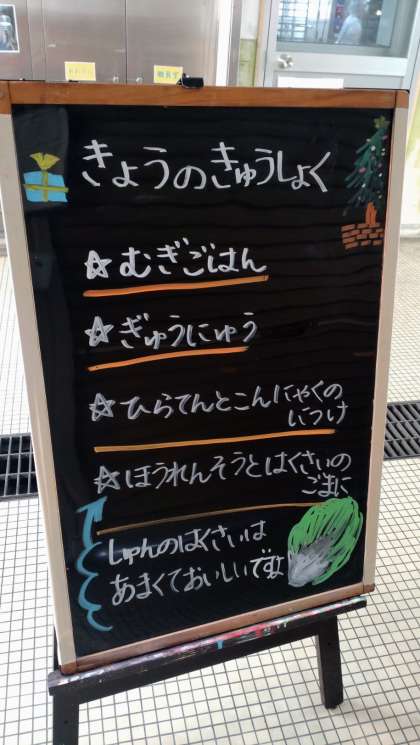 きょうのきゅうしょく
☆むぎごはん
☆ぎゅうにゅう
☆ひらてんとこんにゃくの
につけ
☆ほうれんそうとはくさいの
ごまに
しゅんのはくさいは
あまくておいしいですよ